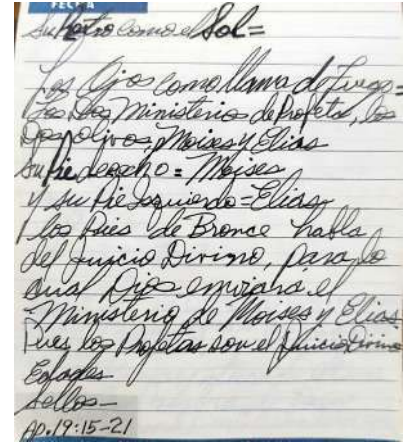 FECHA
Su Rostro como el Sol=
Los Ojos como llama de fuego=
Los Dos Ministerios de Profeta, los
Dos olivos, Moises y Elias
Su Pie derecho = Moises
y su Pie Izquierdo = Elias
los Pies de Bronce habla
del Juicio Divino, para lo
cual Dios enviará el
Ministerio de Moises y Elias
Pues los Profetas son el Juicio Divino
Edades
Sellos-
AP. 19:15-21